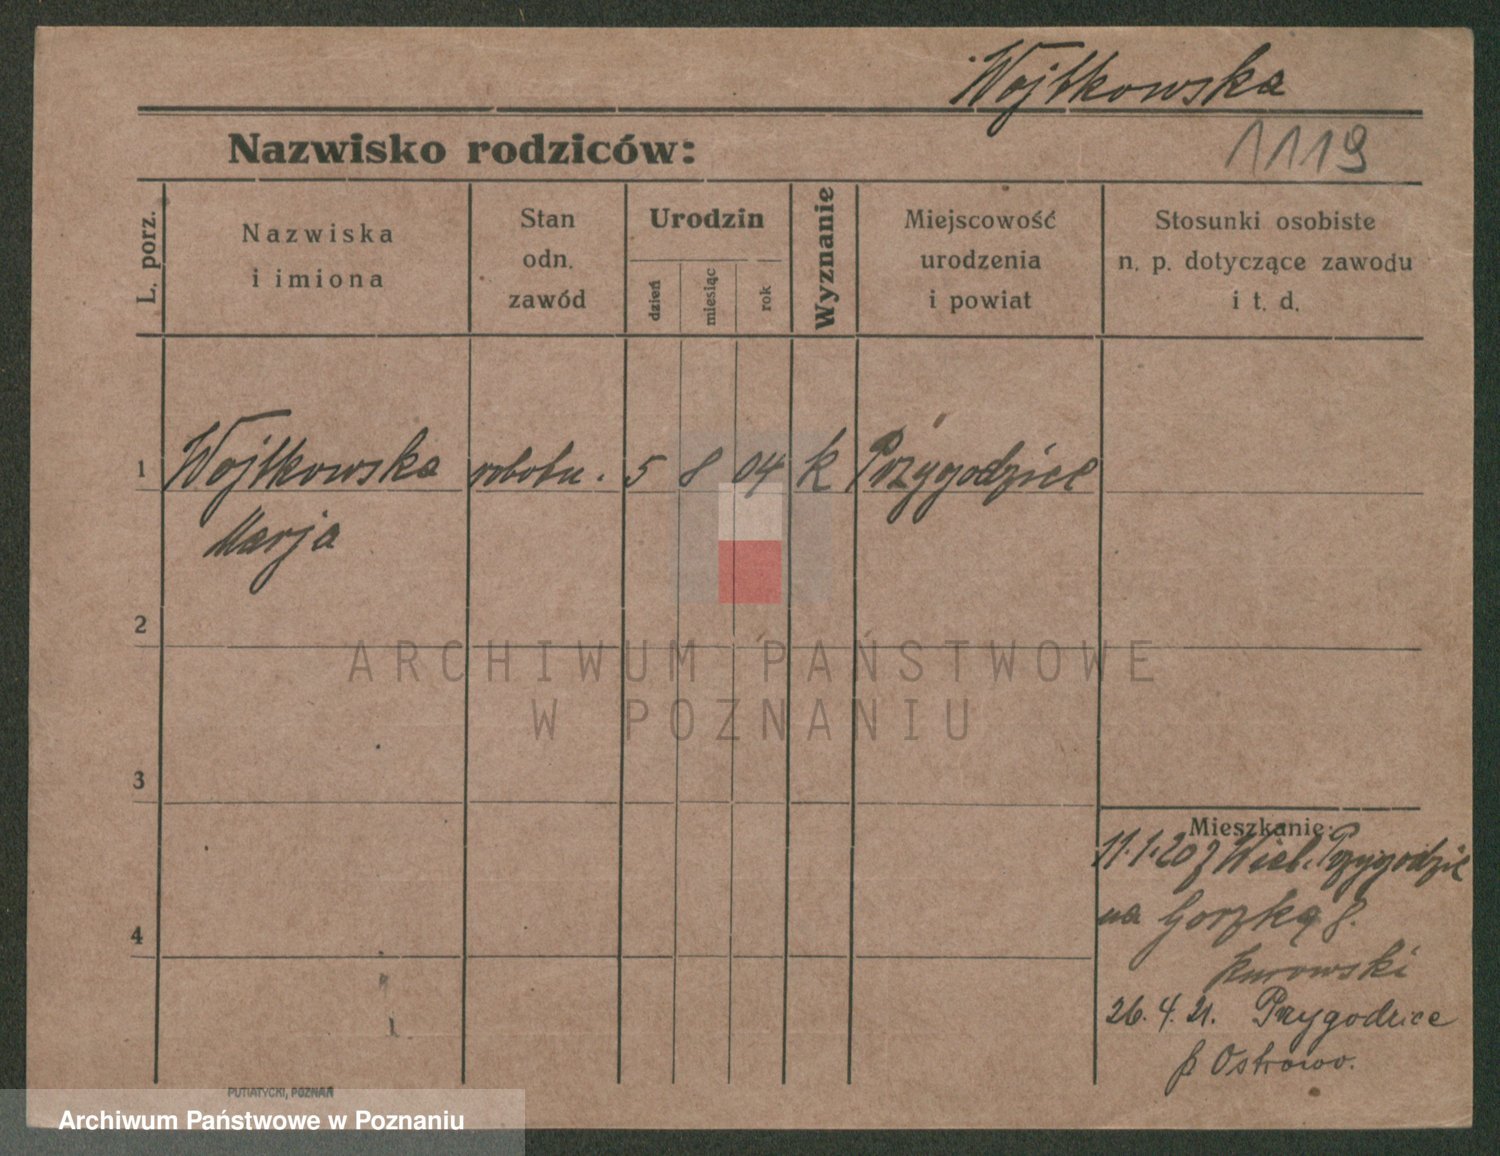 Wojtkowska
1119
Nazwisko rodziców:
L. porz.
Nazwiska
i imiona
Stan
odn.
zawód
Urodzin
dzień
miesiąc
rok
Wyznanie
Miejscowość
urodzenia
i powiat
Stosunki osobiste
n. p. dotyczące zawodu
i t. d.
1 Wojtkowska robotn. 5 8 04 k Przygodzice
Marja
2
ARCHIWUM PAŃSTWOWE
W POZNANIU
3
Mieszkanie:
11.1.20 z Wiel. Przygodzic
na Gorzką 8.
4
Kurowski
26.4.21. Przygodzice
p Ostrowo.
PUTIATYCKI, POZNAŃ
Archiwum Państwowe w Poznaniu